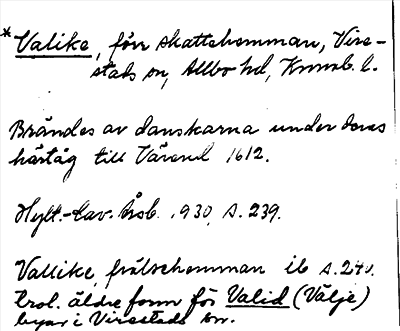 * Valike, förr skattehemman, Vire-
stads sn, Allbo hd, Kronob. l.
Brändes av danskarna under deras
härtåg till Värend 1612.
Hylt.-Cav. årsb. 1930, s. 239.
Vallike, frälsehemman ib s. 240.
trol. äldre form för Valid (Välje)
byar i Virestads sn.